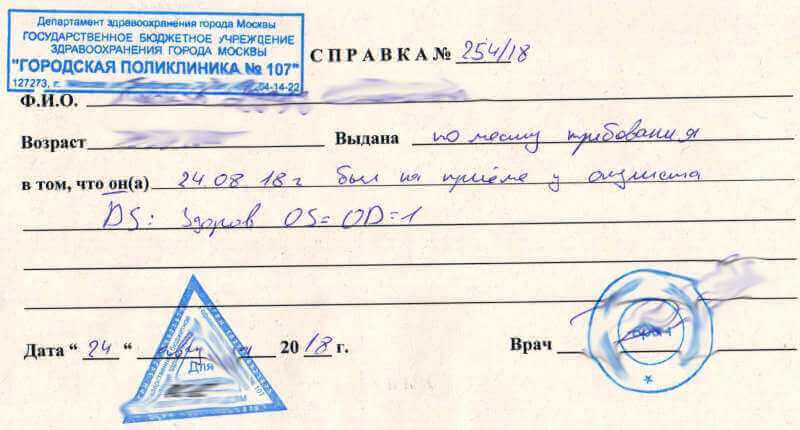 Департамент здравоохранения города Москвы
ГОСУДАРСТВЕННОЕ БЮДЖЕТНОЕ УЧРЕЖДЕНИЕ
ЗДРАВООХРАНЕНИЯ ГОРОДА МОСКВЫ
"ГОРОДСКАЯ ПОЛИКЛИНИКА № 107"
127273, г. 14-22
СПРАВКА № 254/18
Ф.И.О.
Возраст Выдана по месту требования
в том, что он(а) 24.08.18 г был на приёме у окулиста
DS: Здоров OS=OD=1
Дата " 24 " 2018 г. Врач
Для
№ 107
врач